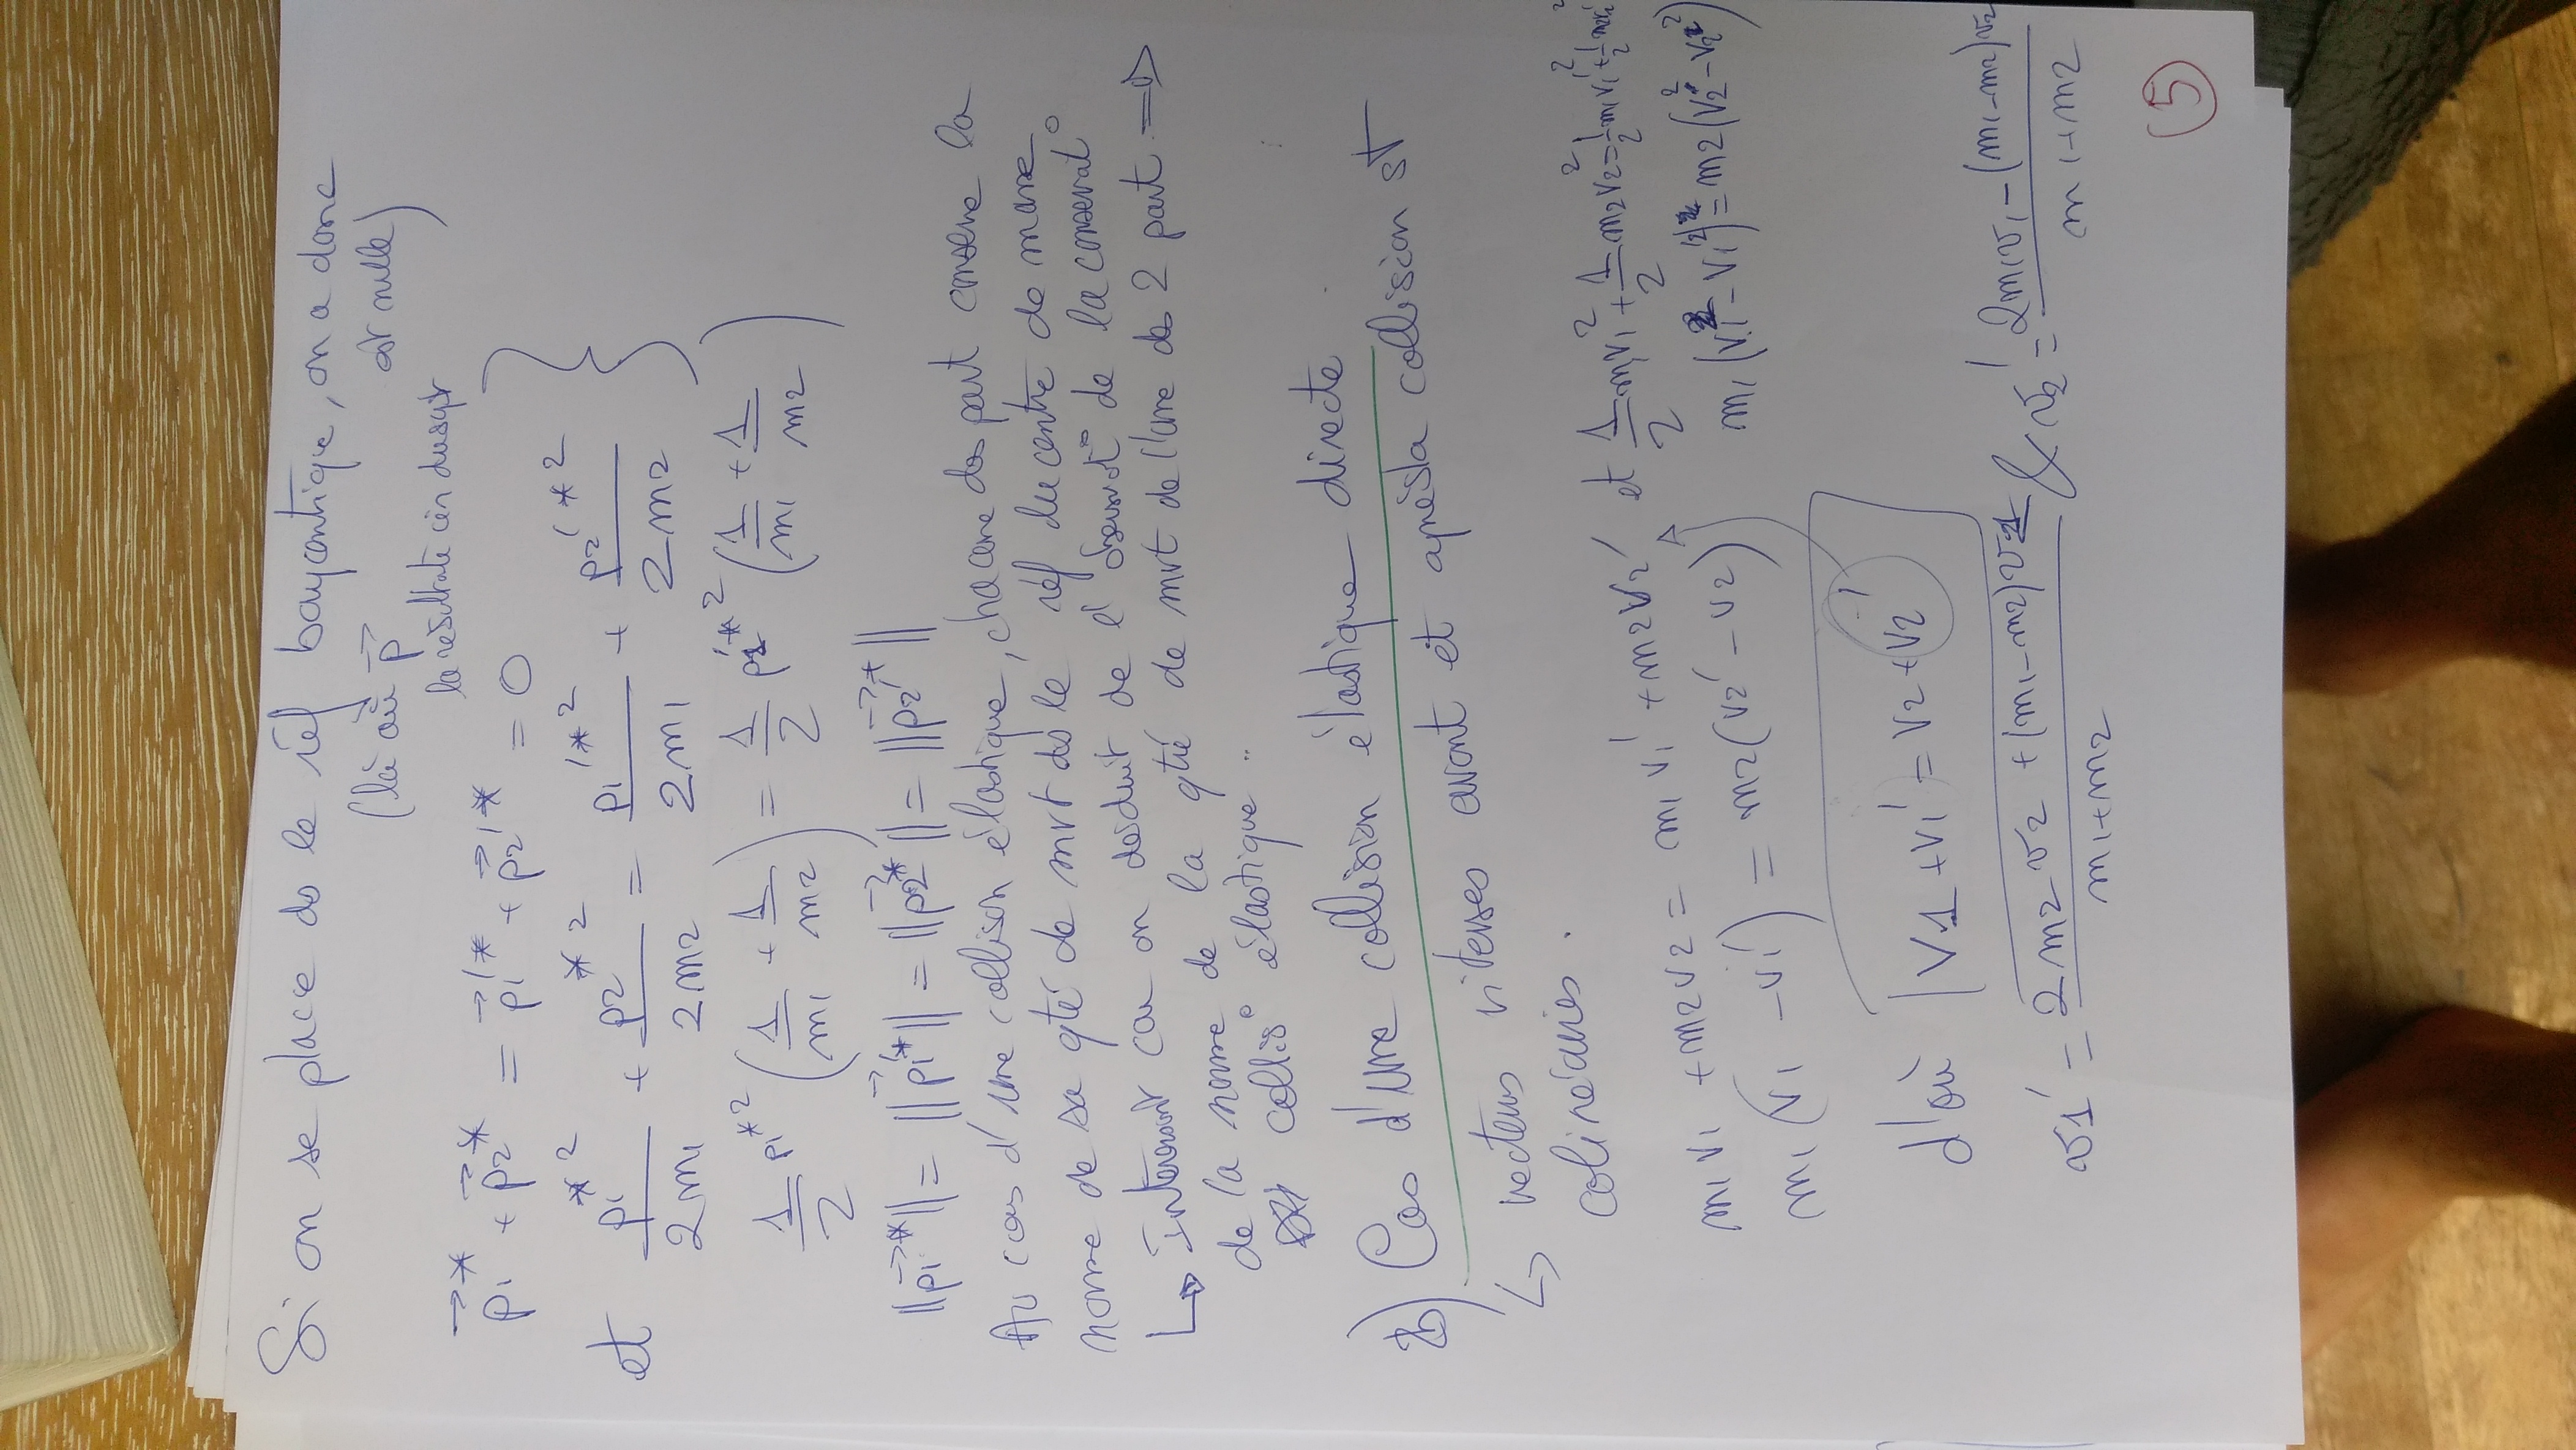 Si on se place ds le réf barycentrique, on a donc
(là où p⃗ est nulle)
la résultante cin du syst
p⃗1* + p⃗2* = p⃗1'* + p⃗2'* = 0
et p1*²/2m1 + p2*²/2m2 = p1'*²/2m1 + p2'*²/2m2
1/2 p1*² (1/m1 + 1/m2) = 1/2 p2'*² (1/m1 + 1/m2)
||p⃗1*|| = ||p⃗1'*|| = ||p⃗2*|| = ||p⃗2'*||
Au cas d'une collision élastique, chacune des part conserve la
norme de sa qté de mvt ds le réf du centre de masse
↳ Intéressant car on déduit de l'observat° de la conservat°
de la norme de la qté de mvt de l'une des 2 part ⇒
collis° élastique ..
b) Cas d'une collision élastique directe
↳ vecteurs vitesses avant et après la collision st
colinéaires.
m1v1 + m2v2 = m1v1' + m2v2' et 1/2 m1v1² + 1/2 m2v2² = 1/2 m1v1'² + 1/2 m2v2'²
m1(v1 - v1') = m2(v2' - v2)
m1(v1² - v1'²) = m2(v2'² - v2²)
d'où v1 + v1' = v2 + v2'
v1' = 2m2v2 + (m1-m2)v1/m1+m2 & v2' = 2m1v1 - (m1-m2)v2/m1+m2
5